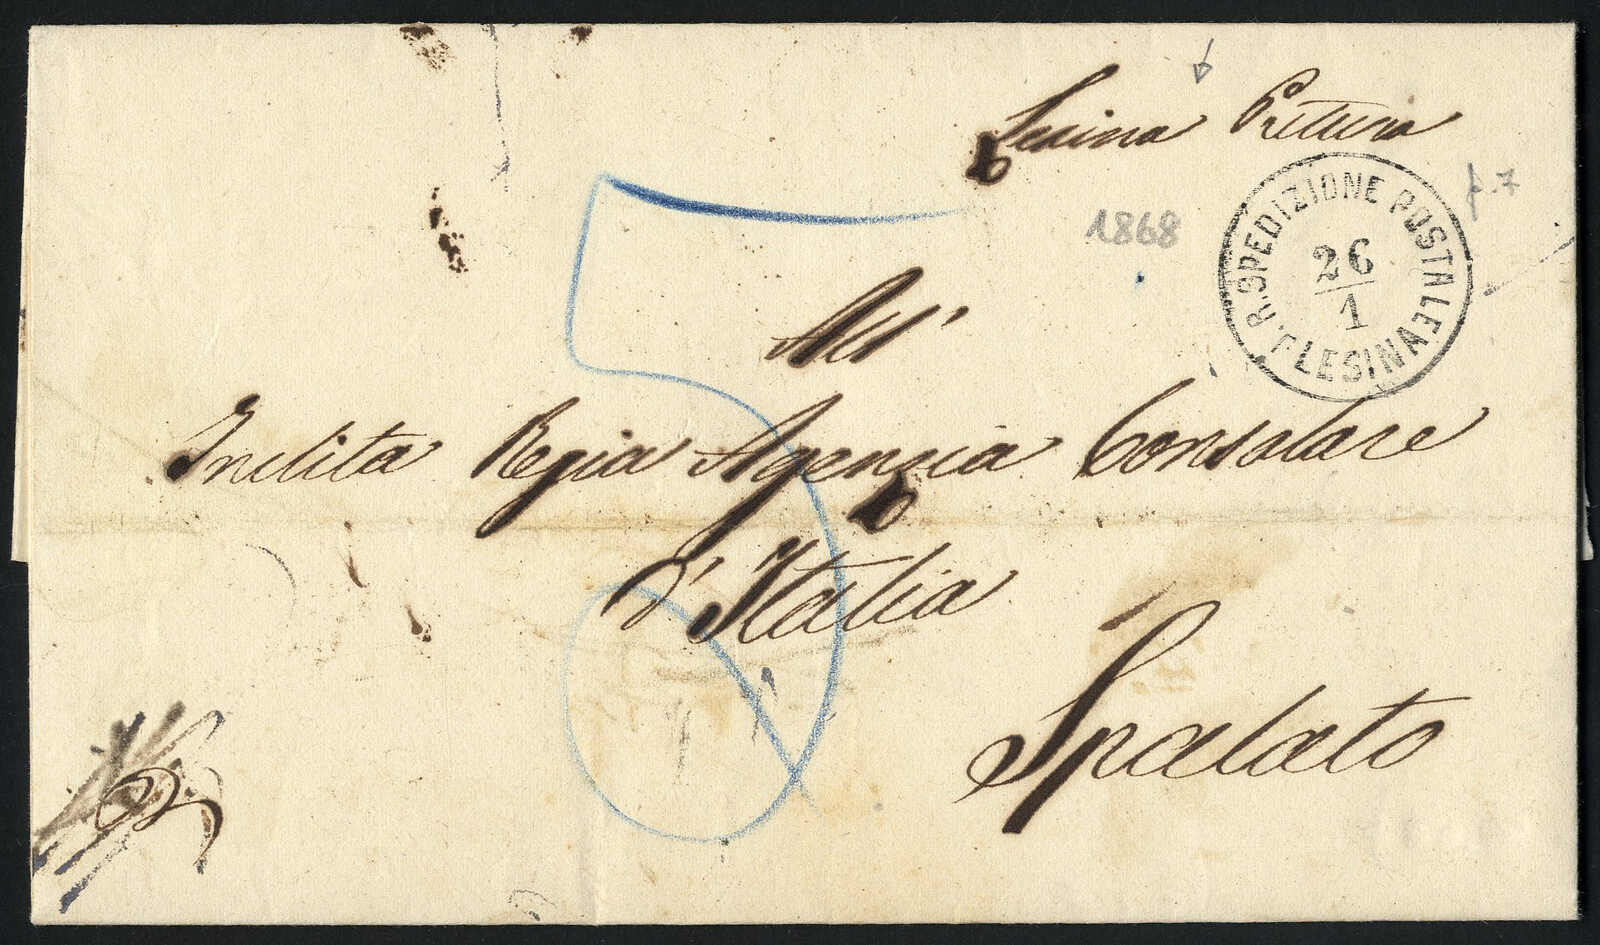 Lesina Pretura
1868
I. R. SPEDIZIONE POSTALE
LESINA
26
1
5
All'
Inclita Regia Agenzia Consolare
d'Italia
Spalato